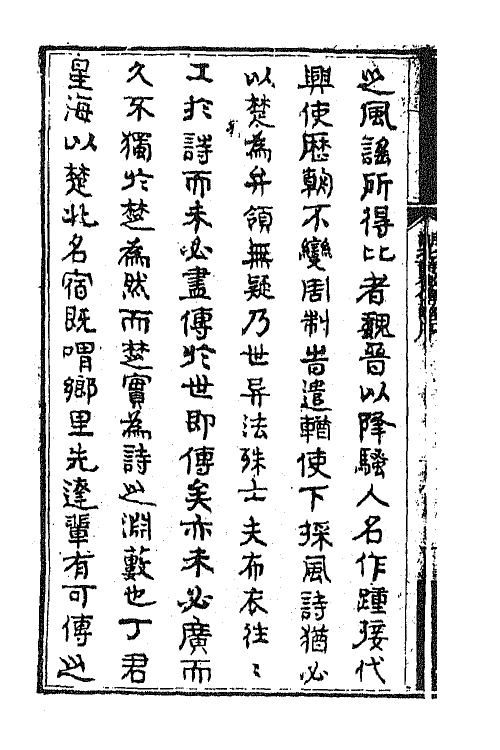 之風謠所得比者魏晉以降騷人名作踵接代
興使歷朝不變周制甞遣輶使下採風詩猶必
以楚爲弁領無疑乃世异法殊士夫布衣往〻
工於詩而未必盡傳於世即傳矣亦未必廣而
久不獨於楚爲然而楚實爲詩之淵藪也丁君
星海以楚北名宿既喟鄉里先達輩有可傳之